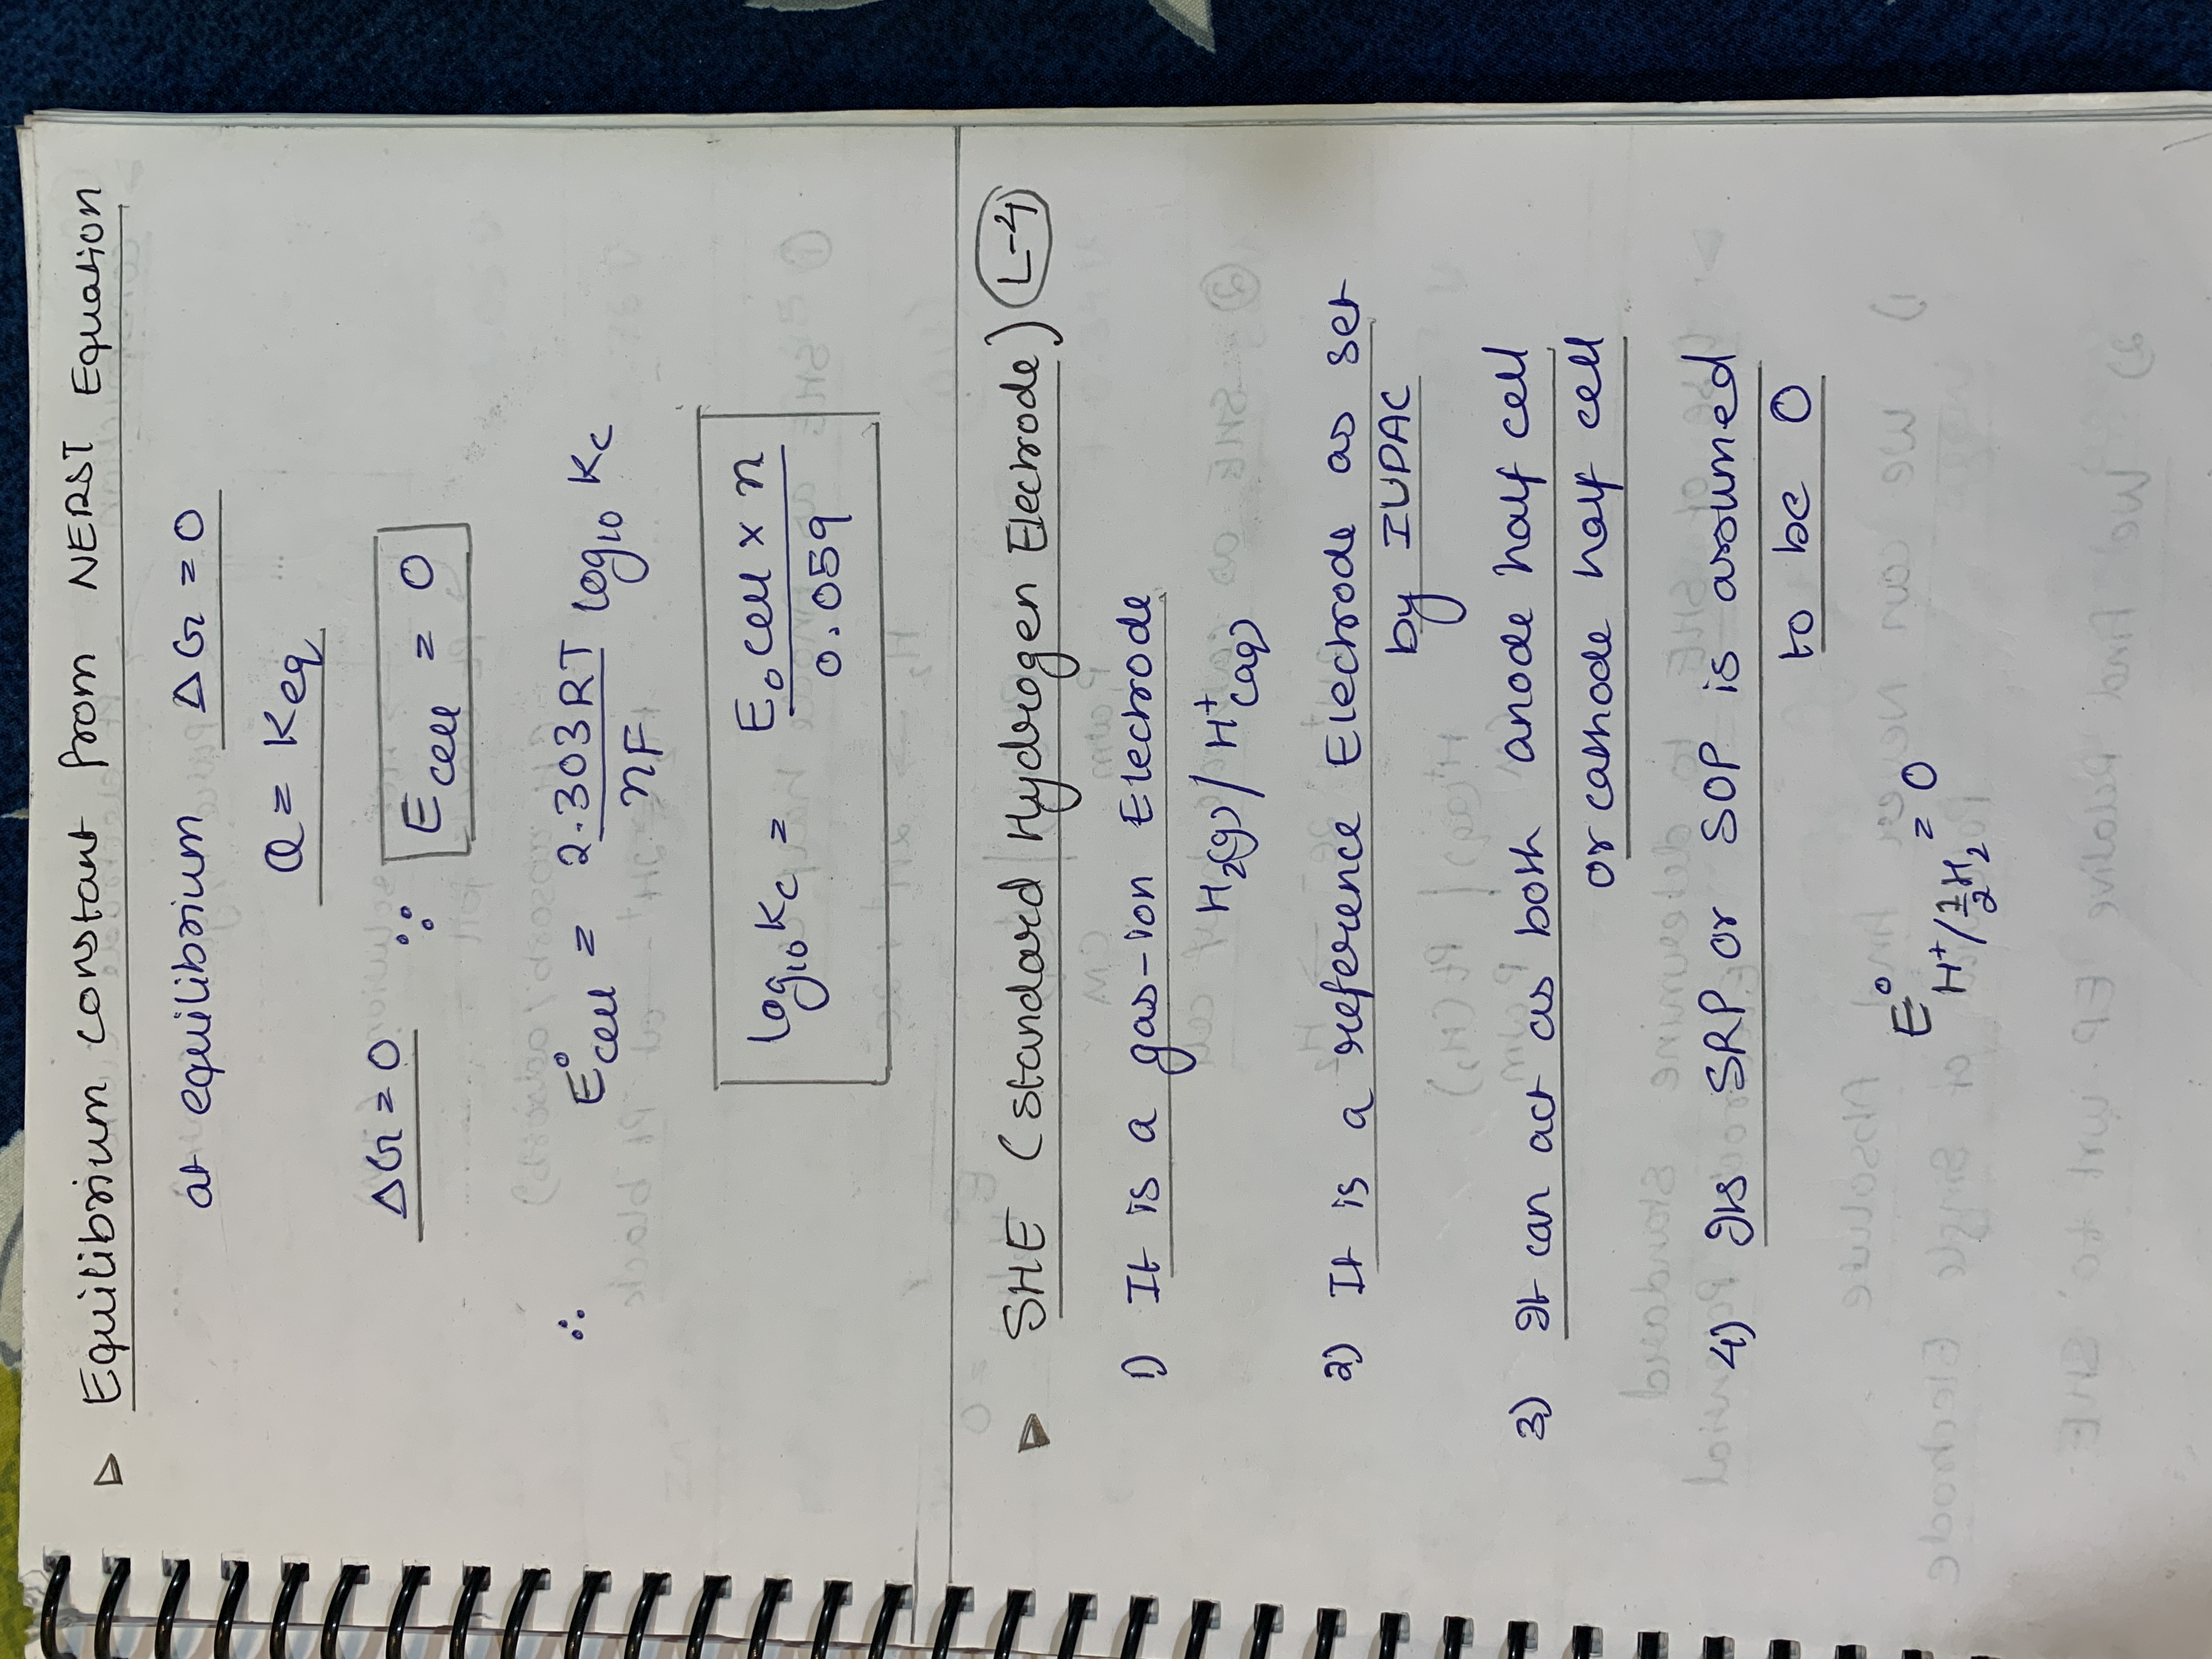 ▷ Equilibrium constant from NERST Equation
at equilibrium ΔG = 0
Q = Keq
ΔG = 0 ∵ E cell = 0
∴ E°cell = 2.303RT/nF log₁₀ Kc
log₁₀ Kc = E₀cell × n / 0.059
▷ SHE (standard Hydrogen Electrode) L-4
1) It is a gas-ion Electrode
H₂(g) / H⁺(aq)
2) It is a reference Electrode as set
by IUPAC
3) It can act as both anode half cell
or cathode half cell
4) Its SRP or SOP is assumed
to be 0
E° H⁺/½H₂ = 0